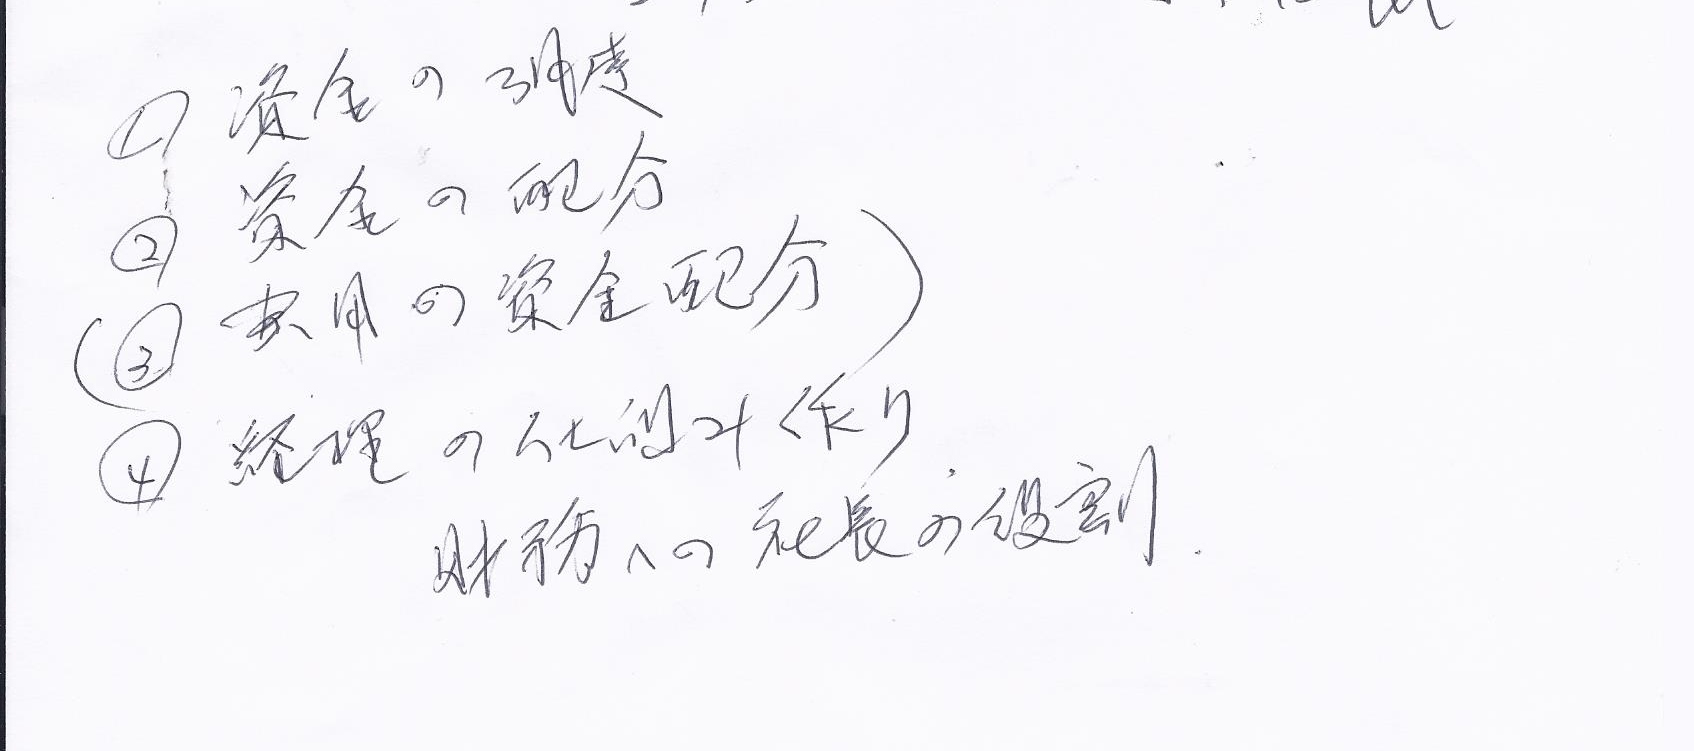 ① 資金の調達
② 資金の配分
(③ 費用の資金配分)
④ 経理の仕組み作り
財務への社長の役割.